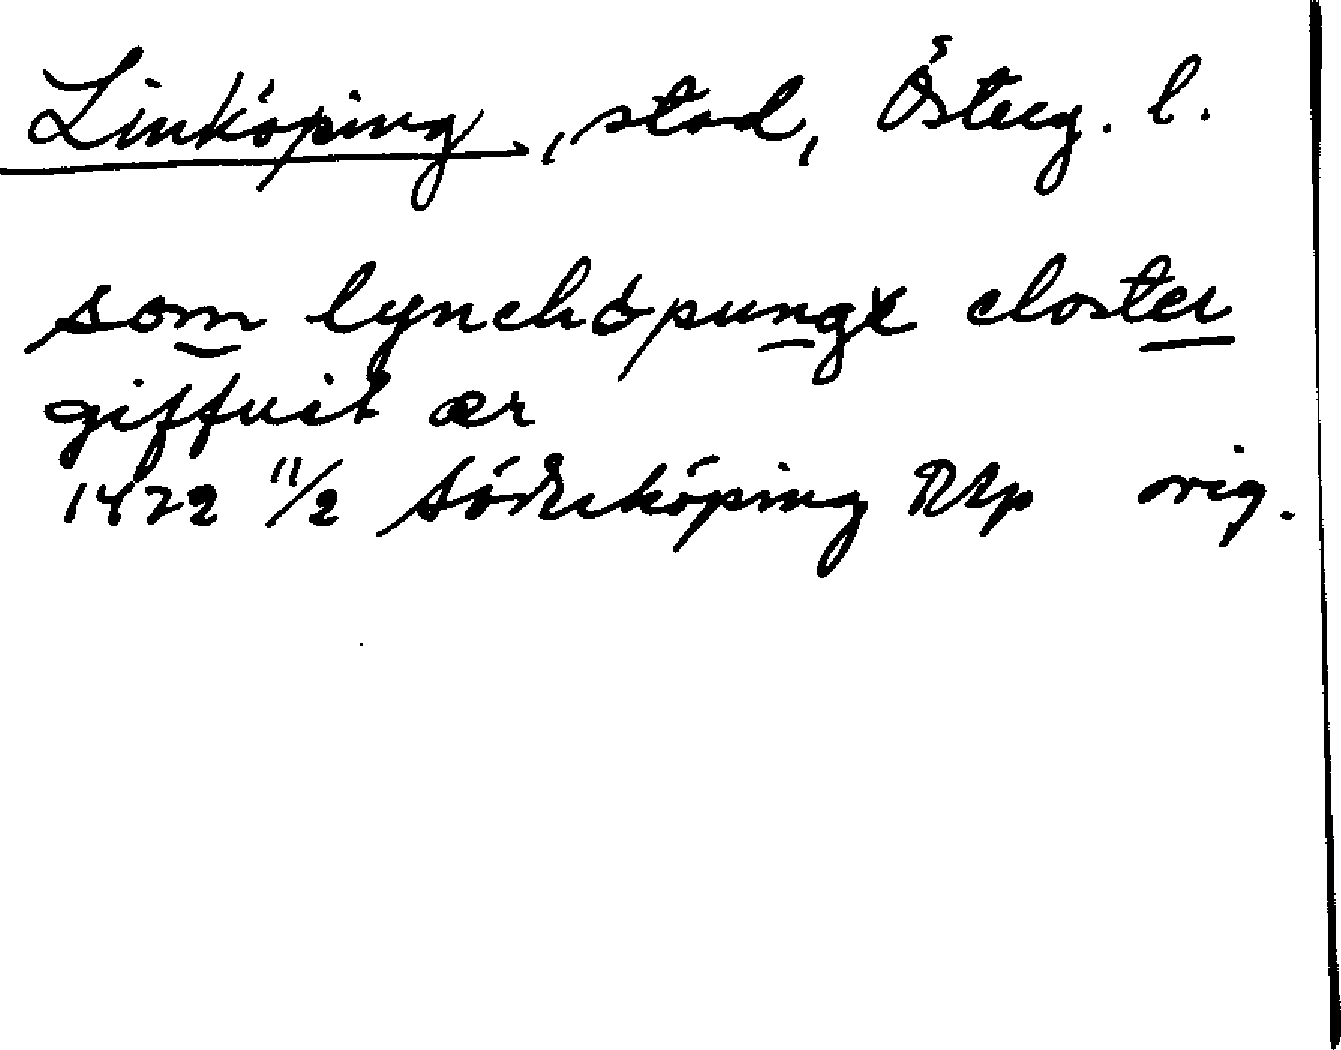 Linköping, stad, Österg. l.
som lynchöpungx closter
giffuit ær
1472 11/2 Söderköping RAp orig.